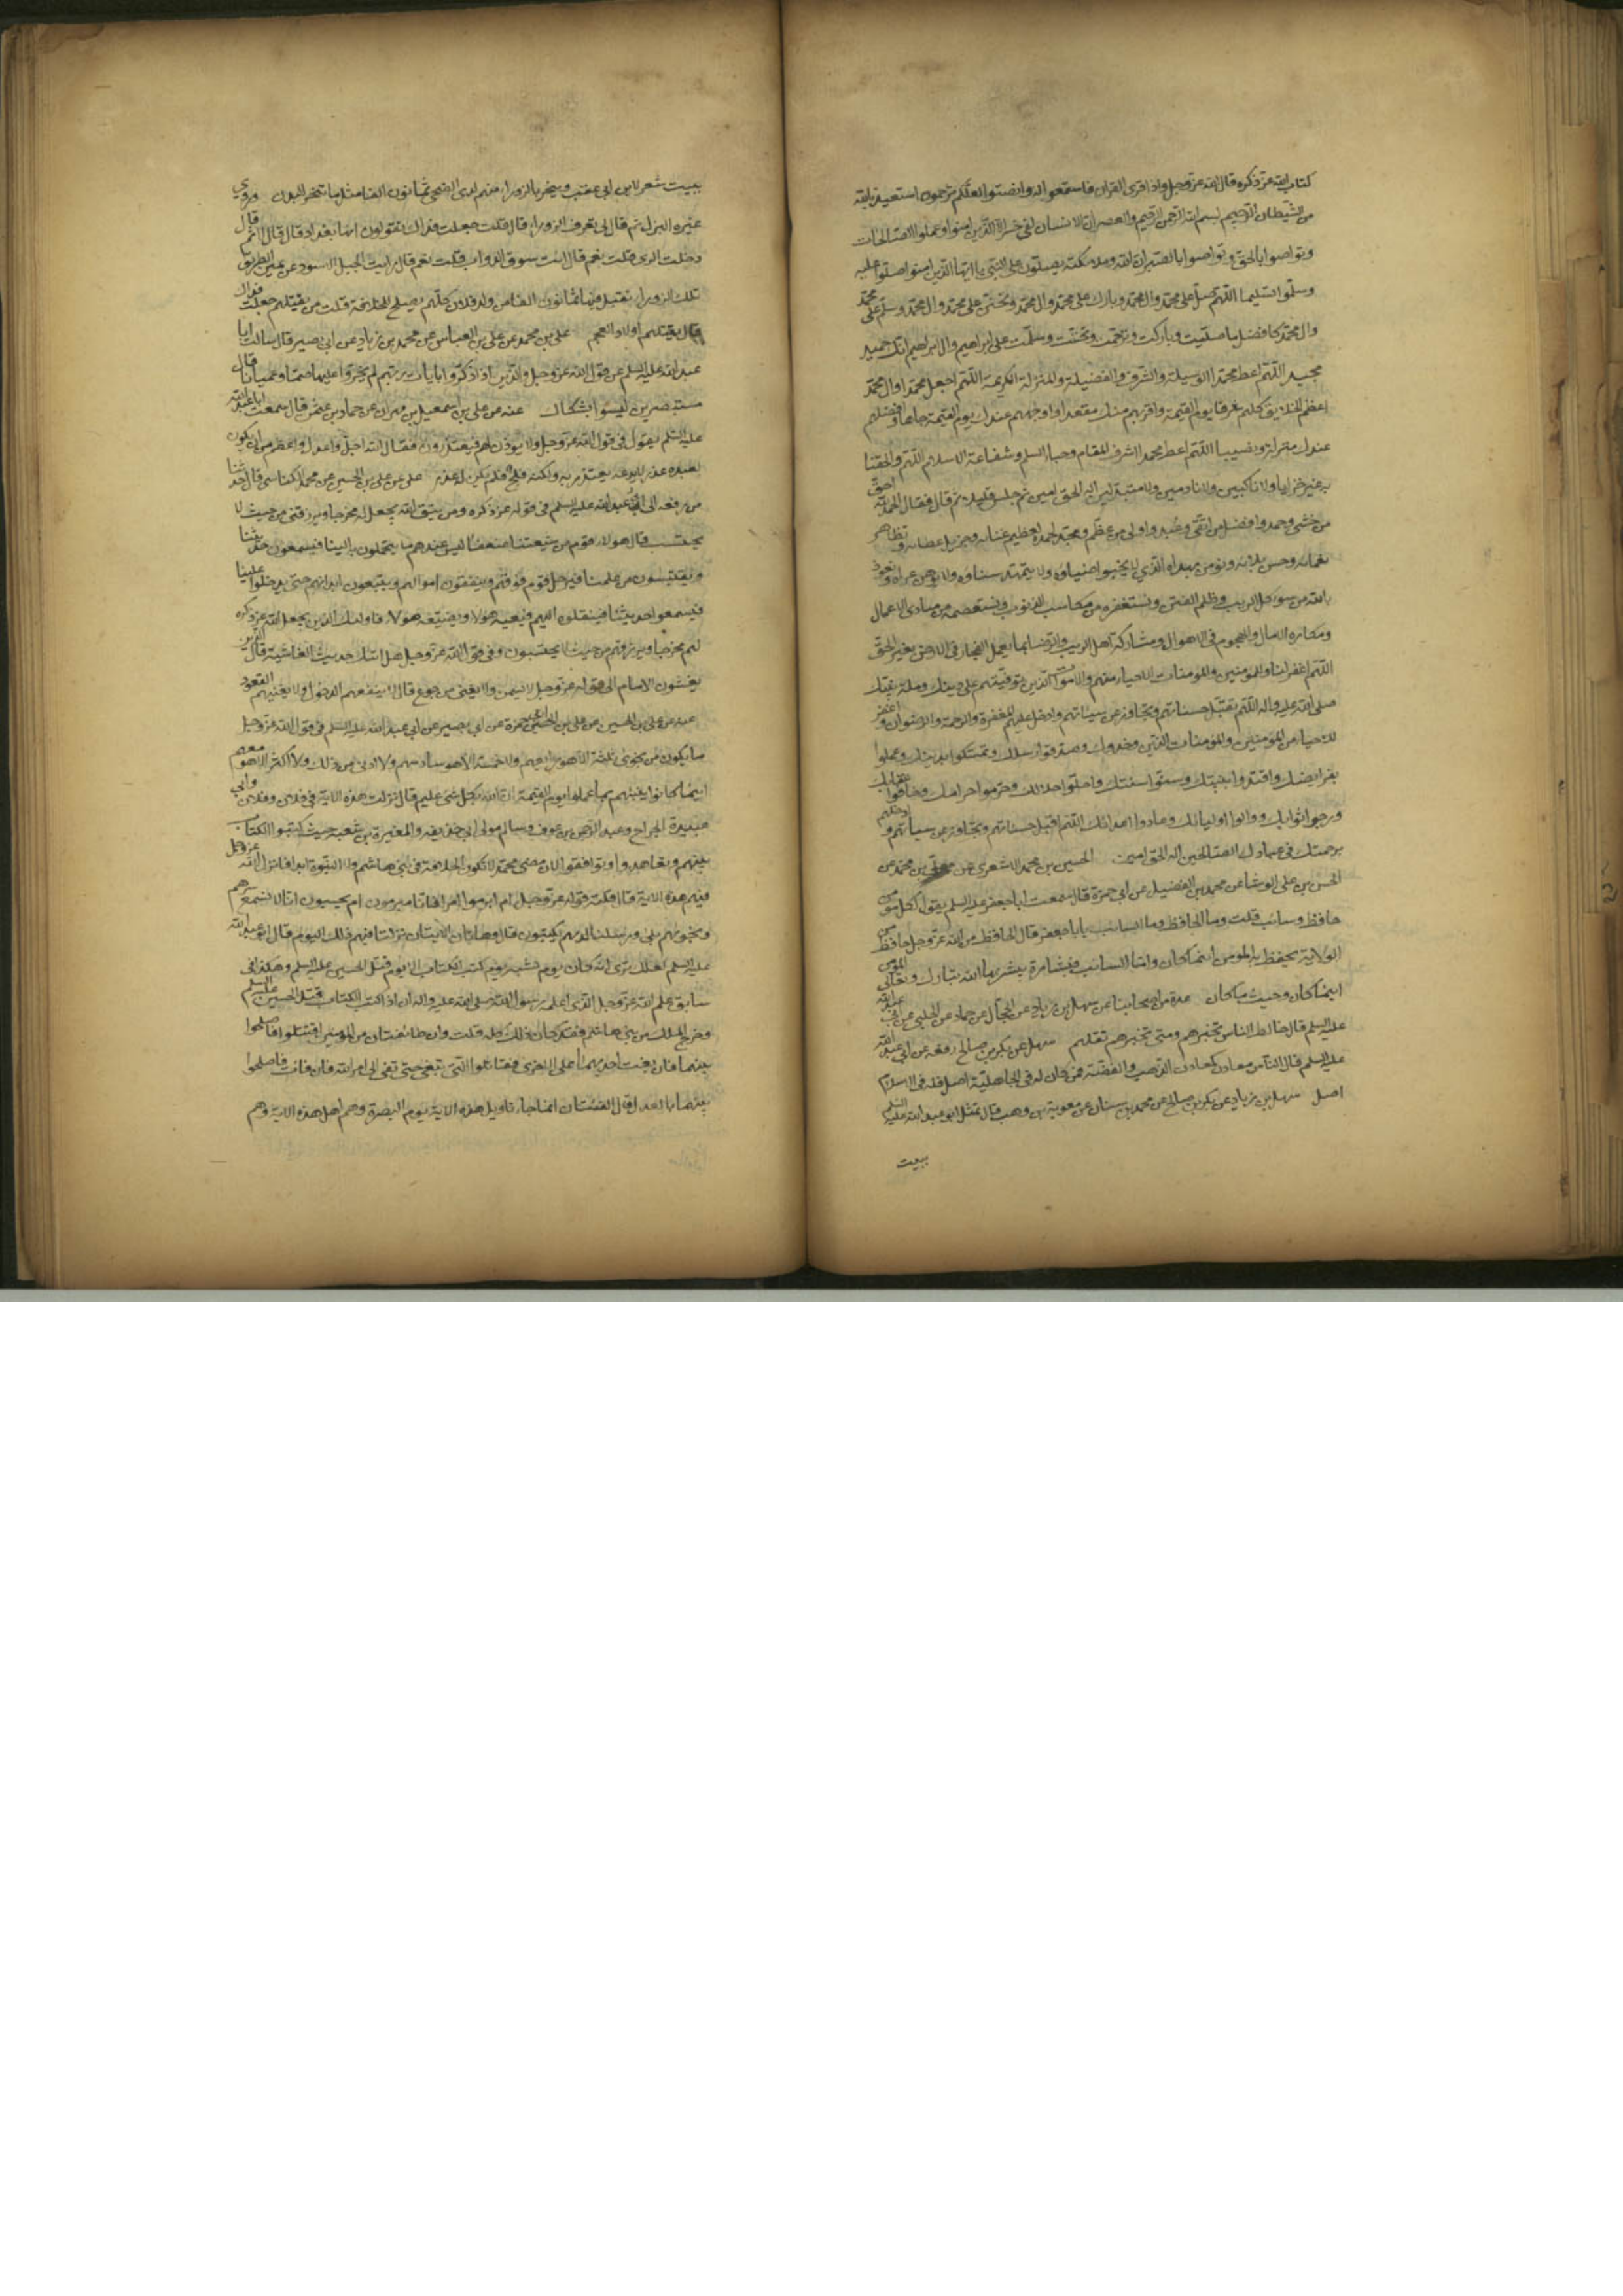 كتاب الله عز ذكره قال الله عز وجل واذا قرئ القران فاستمعوا له وانصتوا لعلكم ترحمون استعيذ بالله
من الشيطان الرجيم بسم الله الرحمن الرحيم والعصر ان الانسان لفي خسر الا الذين امنوا وعملوا الصالحات
وتواصوا بالحق وتواصوا بالصبر ان الله وملائكته يصلون على النبي يا ايها الذين امنوا صلوا عليه
وسلموا تسليما اللهم صل على محمد وال محمد وبارك على محمد وال محمد وتحنن على محمد وال محمد وسلم على محمد
وال محمد كافضل ما صليت وباركت وترحمت وتحننت وسلمت على ابراهيم وال ابراهيم انك حميد
مجيد اللهم اعط محمدا الوسيلة والشرف والفضيلة والمنزلة الكريمة اللهم اجعل محمدا وال محمد
اعظم الخلايق كلهم شرفا يوم القيمة واقربهم منك مقعدا واوجههم عندك يوم القيمة جاها وافضلهم
عندك منزلة ونصيبا اللهم اعط محمدا اشرف المقام وحباء السلم وشفاعة الاسلام اللهم والحقنا
به غير خزايا ولا ناكبين ولا نادمين ولا مبدلين اله الحق امين ثم جلس قليلا ثم قام فقال الحمد لله احق
من خشي وحمد وافضل من اتقي وعبد واولى من عظم ومجد نحمده لعظيم غنائه وجزيل عطائه وتظاهر
نعمائه وحسن بلائه ونؤمن بهداه الذي لا يخبو ضياؤه ولا يتمهد سناؤه ولا يوهن عراه ونعوذ
بالله من سوء كل الريب وظلم الفتن ونستغفره من مكاسب الذنوب ونستعصمه من مساوى الاعمال
ومكاره الامال والهجوم في الاهوال ومشاركة اهل الريب والرضا بما يعمل الفجار في الارض بغير الحق
اللهم اغفر لنا وللمؤمنين والمؤمنات الاحياء منهم والاموات الذين توفيتهم على دينك وملة نبيك
صلى الله عليه واله اللهم تقبل حسناتهم وتجاوز عن سيئاتهم وادخل عليهم المغفرة والرحمة والرضوان واغفر
للاحياء من المؤمنين والمؤمنات الذين وحدوك وصدقوا رسلك وتمسكوا بدينك وعملوا
بفرائضك واقتدوا بنبيك وسنوا سنتك واحلوا حلالك وحرموا حرامك وخافوا عقابك
ورجوا ثوابك ووالوا اوليائك وعادوا اعدائك اللهم اقبل حسناتهم وتجاوز عن سيئاتهم وادخلهم
برحمتك في عبادك الصالحين اله الحق امين الحسين بن محمد الاشعري عن معلى بن محمد عن
الحسن بن علي الوشا عن محمد بن الفضيل عن ابي حمزة قال سمعت ابا جعفر عليه السلم يقول لكل مؤمن
حافظ وسائب قلت وما الحافظ وما السائب يا ابا جعفر قال الحافظ من الله عز وجل حافظ من
الولاية يحفظ به المؤمن اينما كان واما السائب فبشارة يبشر بها الله تبارك وتعالى المؤمن
اينما كان وحيث ما كان عدة من اصحابنا عن سهل بن زياد عن الحجال عن حماد عن الحلبي عن ابي عبد الله
عليه السلم قال خالط الناس تخبرهم ومتى تخبرهم تقلهم سهل عن بكر بن صالح رفعه عن ابي عبد الله
عليه السلم قال الناس معادن كمعادن الذهب والفضة فمن كان له في الجاهلية اصل فله في الاسلام
اصل سهل بن زياد عن بكر بن صالح عن محمد بن سنان عن معوية بن وهب قال تمثل ابو عبد الله عليه السلم
ببيت
ببيت شعر لابن ابي عقب وينحر بالزوراء منهم لدى الضحى ثمانون الفا مثل ما تنحر البدن وروى
غيره البزل ثم قال لي تعرف الزوراء قال قلت جعلت فداك يقولون انها بغداد قال لا ثم قال
دخلت الري قلت نعم قال اتيت سوق الدواب قلت نعم قال رايت الجبل الاسود عن يمين الطريق
تلك الزوراء يقتل فيها ثمانون الفا من ولد فلان كلهم يصلح للخلافة قلت من يقتلهم جعلت فداك
قال يقتلهم اولاد العجم علي بن محمد عن علي بن العباس عن محمد بن زياد عن ابي بصير قال سالت ابا
عبد الله عليه السلم عن قول الله عز وجل والذين اذا ذكروا بايات ربهم لم يخروا عليها صما وعميانا قال
مستبصرين ليسوا بشكاك عنه عن علي بن اسمعيل بن مهران عن حماد بن عثمن قال سمعت ابا عبد الله
عليه السلم يقول في قول الله عز وجل ولا يؤذن لهم فيعتذرون فقال الله اجل واعدل واعظم من ان يكون
لعبده عذر لا يدعه يعتذر به ولكنه فلج فلم يكن له عذر علي عن علي بن الحسين عن محمد الكناسي قال حدثنا
من رفعه الى ابي عبد الله عليه السلم في قوله عز ذكره ومن يتق الله يجعل له مخرجا ويرزقه من حيث لا
يحتسب قال هؤلاء قوم من شيعتنا ضعفاء ليس عندهم ما يتحملون به الينا فيسمعون حديثنا
ويقتبسون من علمنا فيرحل قوم فوقهم وينفقون اموالهم ويتعبون ابدانهم حتى يدخلوا علينا
فيسمعوا حديثنا فينقلون اليهم فيعيه هؤلاء ويضيعه هؤلاء فاولئك الذين يجعل الله عز ذكره
لهم مخرجا ويرزقهم من حيث لا يحتسبون وفي قول الله عز وجل هل اتيك حديث الغاشية قال الذين
يغشون الامام الى قوله عز وجل لا يسمن ولا يغني من جوع قال لا ينفعهم الدخول ولا يغنيهم القعود
عنه عن علي بن الحسين عن علي بن ابي حمزة عن ابي بصير عن ابي عبد الله عليه السلم في قول الله عز وجل
ما يكون من نجوى ثلثة الا هو رابعهم ولا خمسة الا هو سادسهم ولا ادنى من ذلك ولا اكثر الا هو معهم
اينما كانوا ينبئهم بما عملوا يوم القيمة ان الله بكل شئ عليم قال نزلت هذه الاية في فلان وفلان وابي
عبيدة الجراح وعبد الرحمن بن عوف وسالم مولى ابي حذيفة والمغيرة بن شعبة حيث كتبوا الكتاب
بينهم وتعاهدوا وتوافقوا لان مضى محمد لا تكون الخلافة في بني هاشم ولا النبوة ابدا فانزل الله عز وجل
فيهم هذه الاية قال قلت قوله عز وجل ام ابرموا امرا فانا مبرمون ام يحسبون انا لا نسمع سرهم
ونجويهم بلى ورسلنا لديهم يكتبون قال وهاتان الايتان نزلتا فيهم ذلك اليوم قال ابو عبد الله
عليه السلم لعلك ترى انه كان يوم يشبه يوم كتب الكتاب الا يوم قتل الحسين عليه السلم وهكذا في
سابق علم الله عز وجل الذي اعلمه رسول الله صلى الله عليه واله ان اذا كتب الكتاب قتل الحسين عليه السلم
وخرج الملك من بني هاشم فقد كان ذلك كله قلت وان طائفتان من المؤمنين اقتتلوا فاصلحوا
بينهما فان بغت احديهما على الاخرى فقاتلوا التي تبغي حتى تفئ الى امر الله فان فاءت فاصلحوا
بينهما بالعدل قال الفئتان انما جاء تاويل هذه الاية يوم البصرة وهم اهل هذه الاية وهم